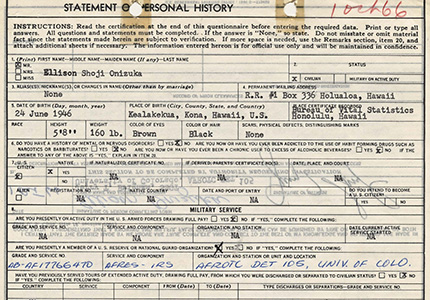 STATEMENT OF PERSONAL HISTORY
1 Oct 66
INSTRUCTIONS: Read the certification at the end of this questionnaire before entering the required data. Print or type all
answers. All questions and statements must be completed. If the answer is "None," so state. Do not misstate or omit material
fact since the statements made herein are subject to verification. If more space is needed, use the Remarks section, item 20, and
attach additional sheets if necessary. The information entered herein is for official use only and will be maintained in confidence.
FIRST NAME—MIDDLE NAME—MAIDEN NAME (If any)—LAST NAME
STATUS
MRS.
Ellison Shoji Onizuka
X CIVILIAN
MILITARY ON ACTIVE DUTY
3. ALIAS(ES), NICKNAME(S), OR CHANGES IN NAME (Other than by marriage)
4. PERMANENT MAILING ADDRESS
None
R.R. #1 Box 336 Holualoa, Hawaii
5. DATE OF BIRTH (Day, month, year)
PLACE OF BIRTH (City, County, State, and Country)
24 June 1946
Kealakekua, Kona, Hawaii, U.S.
Bureau of Vital Statistics
Honolulu, Hawaii
RACE
HEIGHT
WEIGHT
COLOR OF EYES
COLOR OF HAIR
SCARS, PHYSICAL DEFECTS, DISTINGUISHING MARKS
5'8"
160 lb.
Brown
Black
None
6. DO YOU HAVE A HISTORY OF MENTAL OR NERVOUS DISORDERS?
ARE YOU NOW OR HAVE YOU EVER BEEN ADDICTED TO THE USE OF HABIT FORMING DRUGS SUCH AS
NARCOTICS OR BARBITURATES? YES NO
ARE YOU NOW OR HAVE YOU EVER BEEN A CHRONIC USER TO EXCESS OF ALCOHOLIC BEVERAGES?
IF THE
ANSWER TO ANY OF THE ABOVE IS "YES", EXPLAIN IN ITEM 20.
7. U.S. CITIZEN
NATIVE
IF NATURALIZED, CERTIFICATE NO.
IF DERIVED, PARENTS CERTIFICATE NO(S).
DATE, PLACE, AND COURT
NA
NA
NA
ALIEN
REGISTRATION NO.
NATIVE COUNTRY
DATE AND PORT OF ENTRY
DO YOU INTEND TO BECOME A U.S. CITIZEN?
NA
NA
NA
8. MILITARY SERVICE
ARE YOU PRESENTLY ON ACTIVE DUTY IN THE U.S. ARMED FORCES DRAWING FULL PAY? YES X NO IF "YES," COMPLETE THE FOLLOWING:
GRADE AND SERVICE NO.
SERVICE AND COMPONENT
ORGANIZATION AND STATION
DATE CURRENT ACTIVE SERVICE STARTED
NA
NA
NA
NA
ARE YOU PRESENTLY A MEMBER OF A U.S. RESERVE OR NATIONAL GUARD ORGANIZATION? X YES NO IF "YES," COMPLETE THE FOLLOWING:
GRADE AND SERVICE NO.
SERVICE AND COMPONENT
ORGANIZATION AND STATION OR UNIT AND LOCATION
AFRES - IRS
AFROTC DET 105, UNIV. OF COLO.
HAVE YOU PREVIOUSLY SERVED TOURS OF EXTENDED ACTIVE DUTY, DRAWING FULL PAY FROM WHICH YOU WERE DISCHARGED OR SEPARATED TO CIVILIAN STATUS?
IF "YES," COMPLETE THE FOLLOWING:
COUNTRY
SERVICE
COMPONENT
FROM (Date)
TO (Date)